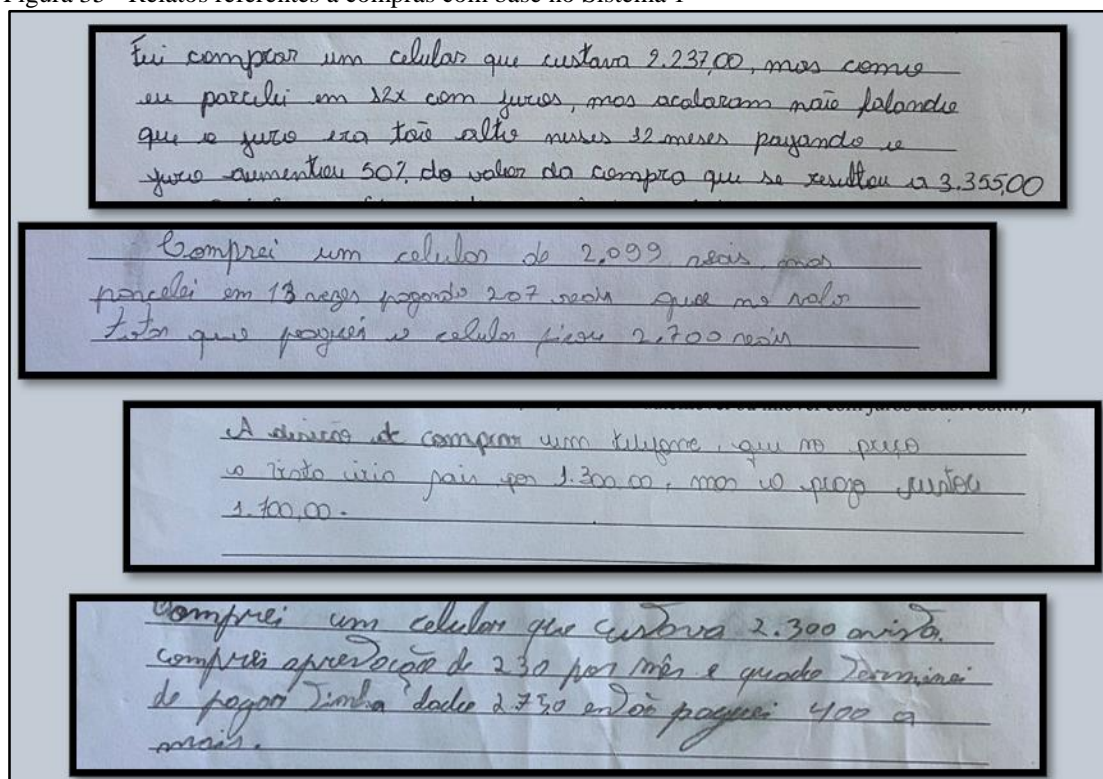 Figura 33 - Relatos referentes a compras com base no Sistema 1
Fui comprar um celular que custava 2.237,00, mas como
eu parcelei em 12x com juros, mas acabaram não falando
que o juro era tão alto nesses 12 meses pagando o
juro aumentou 50% do valor da compra que se resultou a 3.355,00
Comprei um celular de 2,099 reais mas
parcelei em 13 vezes pagando 207 reais que no valor
que paguei o celular ficou 2,700 reais
A de comprar um telefone, que no preço
a por 1.300,00, mas o prazo
1.700,00.
Comprei um celular que custava 2.300 avista.
comprei aprestação de 230 por mês e quado Terminei
de pagar Tinha dado 2.750 então paguei 400 a
mais.